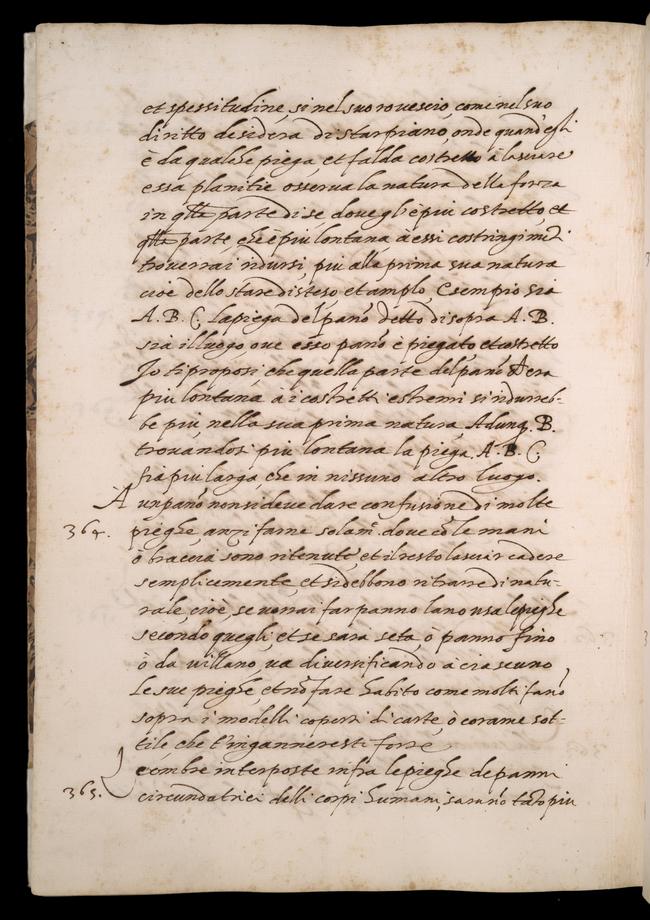 et spessitudine, si nel suo rovescio, come nel suo
diritto desidera di star piano, onde quand'egli
è da qualche piega et falda costretto à lasciare
essa planitie osserva la natura della forza
in qlla parte di se, dove gli è più costretto, et
qlla parte, che è più lontana à essi costringimti
troverrai ridursi più alla prima sua natura
cioè dello stare disteso, et amplo, Esempio sia
A. B. C. la piega del pano detto di sopra A. B.
sia il luogo ove esso pano è piegato et costretto
Jo ti proposi che quella parte del pano ch'era
più lontana à i costretti estremi si indurreb-
be più nella sua prima natura Adunq. B.
trovandosi più lontana la piega A. B. C.
fia più larga che in nissuno altro luogo.
A un pano non si deve dare confusione di molte
364. pieghe anzi farne solamte. dove cō le mani
ò braccia sono ritenute, et il resto lasciar cadere
semplicemente, et si debbono ritrarre di natu-
rale, cioè, se vorrai far panno lano usa le pieghe
secondo quegli, et se sara seta, ò panno fino
ò da villano, va diversificando à ciascuno
le sue pieghe, et nō fare habito come molti fano
sopra i modelli coperti di carte, ò corame sot-
tile, che t'inganneresti forte
L'ombre interposte infra le pieghe de panni
365. circundatrici delli corpi humani, sarano tāto più